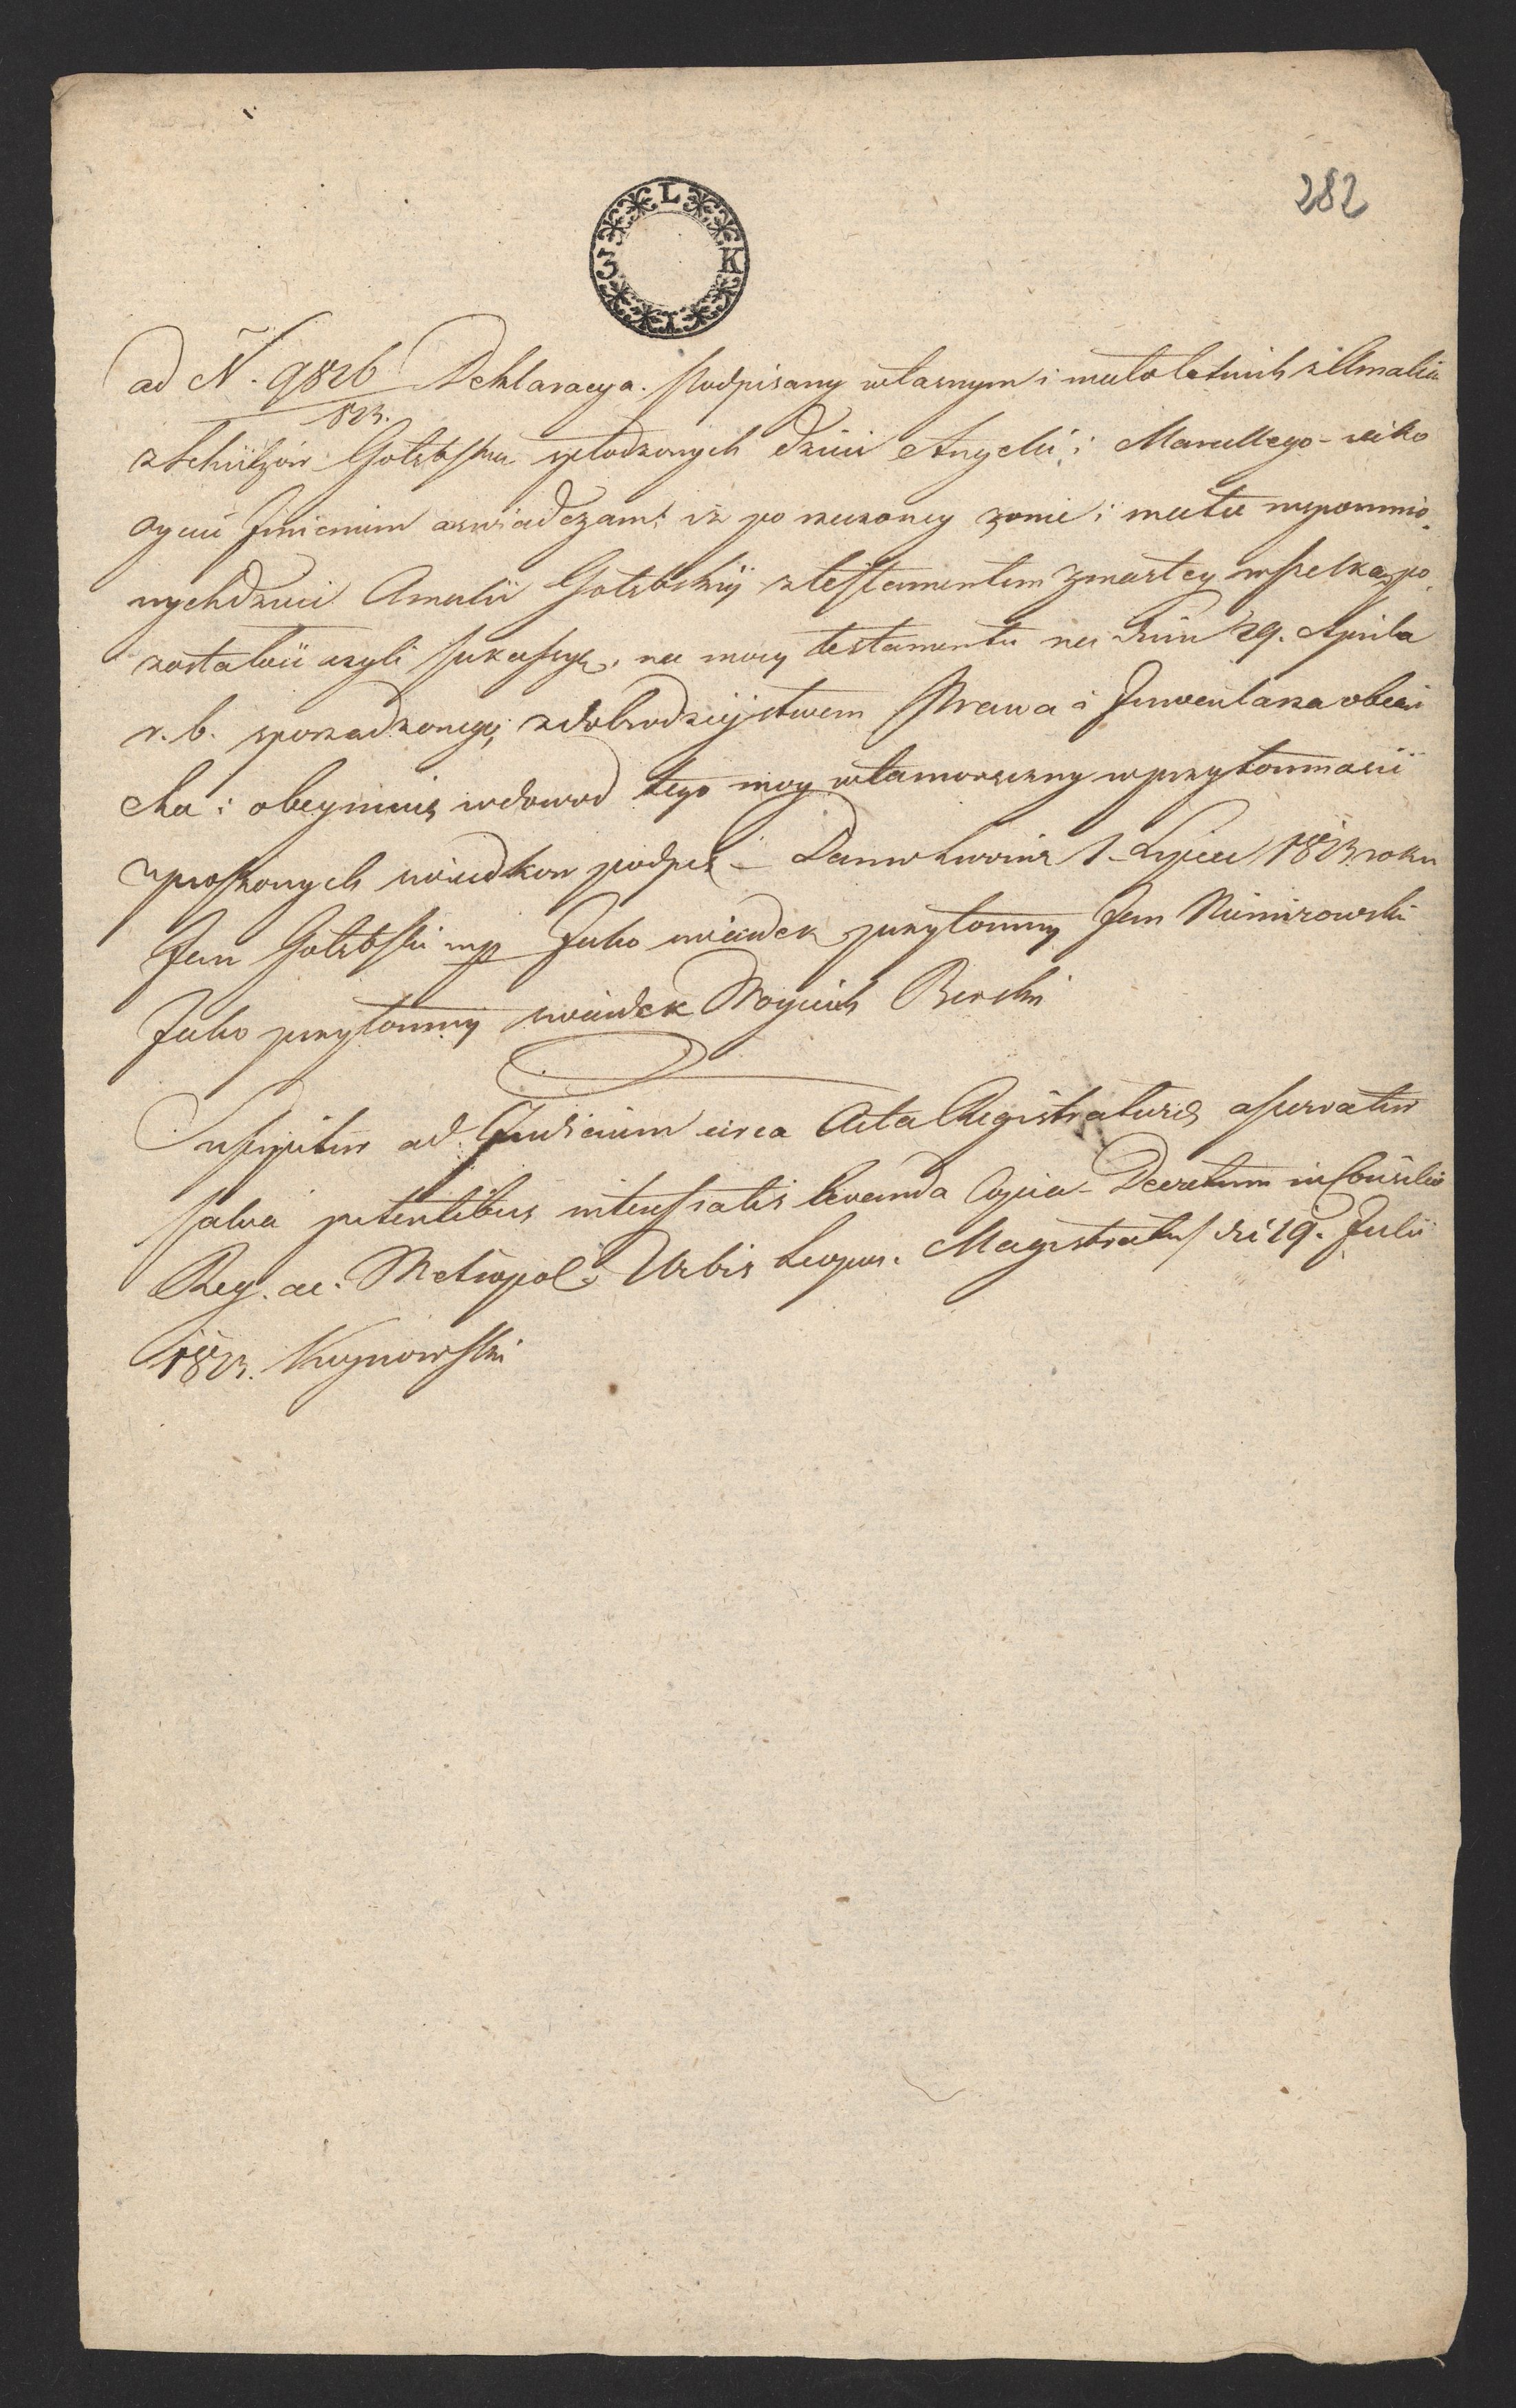 282
3 L K I
ad N. 9826 Deklaracya. Podpisany własnym i małoletnich z Amalią
823.
z Schützów Gołębską spłodzonych dzieci Angeli i Marcellego - jako
Oyciec Jmieniem oswiadczam: iż po rzeczoney żonie i matce wspomnio-
nychdzieci Amalii Gołębskiij z testamentem zmarłey wszelką po-
zostałość czyli sukcessyę, na mocy testamentu na dniu 29. Aprila
r. b. sporządzonego; z dobrodzieijstwem Prawa i Jnwentarza
i obeymuię wdowod tego moy własnoręczny wprzytomności
uproszonych swiadkow podpis - Dan w Lwowie 1 Lipca 1823 roku
Jan Gołębski mp Jako swiadek przytomny Jan Nimirowski
Jako przytomny swiadek Woyciech Berski
Suscipitur ad Judicium circa Acta Registraturæ asservatur
salva petentibus interessatis levanda Copia - Decretum in Consilio
Reg. ac. Metropol. Urbis Leopol. Magistratus di 19. Julii
1823.